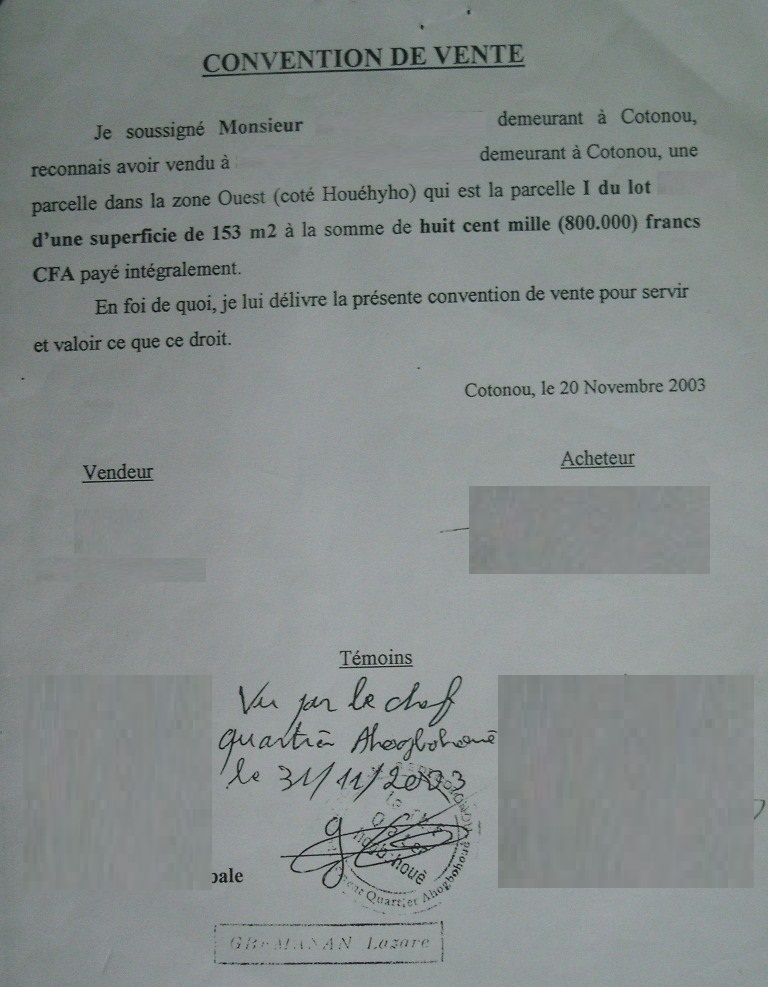 CONVENTION DE VENTE
Je soussigné Monsieur demeurant à Cotonou,
reconnais avoir vendu à demeurant à Cotonou, une
parcelle dans la zone Ouest (coté Houéhyho) qui est la parcelle I du lot
d'une superficie de 153 m2 à la somme de huit cent mille (800.000) francs
CFA payé intégralement.
En foi de quoi, je lui délivre la présente convention de vente pour servir
et valoir ce que ce droit.
Cotonou, le 20 Novembre 2003
Vendeur
Acheteur
Témoins
Vu par le chef
quartier Ahogbohouè
le 31/11/2003
Quartier Ahogbohouè
pale
Lazare